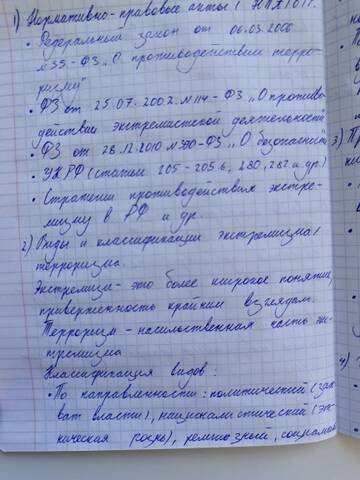 1) Нормативно-правовые акты (НПА) от:
• Федеральный закон от 06.03.2006
№35-ФЗ „О противодействии терро-
ризму"
• ФЗ от 25.07.2002 №114-ФЗ „О противо-
действии экстремистской деятельности"
• ФЗ от 28.12.2010 №390-ФЗ „О безопасности"
• УК РФ (статьи 205-205.6, 280, 282 и др.)
• Стратегии противодействия экстре-
мизму в РФ и др.
2) Виды и классификации экстремизма/
терроризма.
Экстремизм - это более широкое понятие,
приверженность крайним взглядам.
Терроризм - насильственная часть экс-
тремизма
Классификация видов:
• По направленности: политический (зах-
ват власти), националистический (этн
ническая рознь), религиозный, социальн
3)
4)